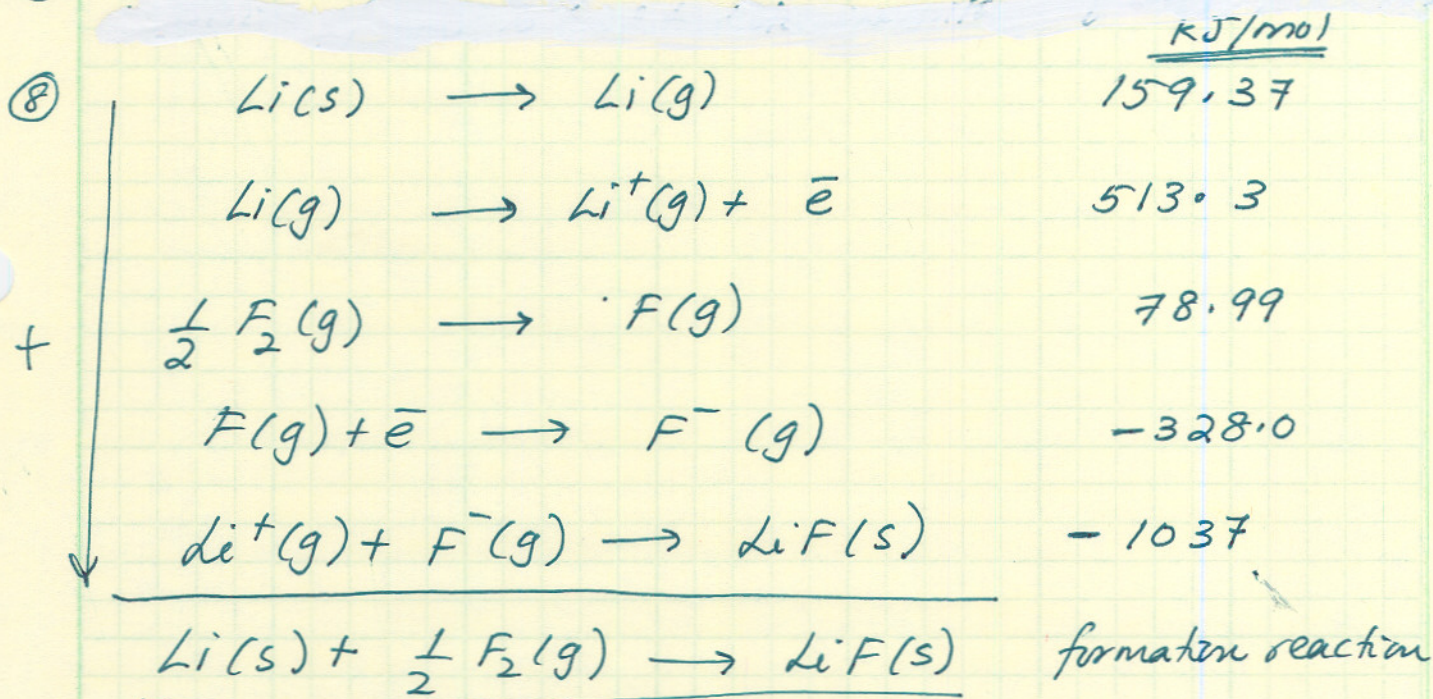 kJ/mol
⑧ Li(s) → Li(g) 159.37
Li(g) → Li⁺(g) + ē 513.3
+ ½ F₂(g) → F(g) 78.99
F(g) + ē → F⁻(g) -328.0
Li⁺(g) + F⁻(g) → LiF(s) -1037
Li(s) + ½ F₂(g) → LiF(s) formation reaction